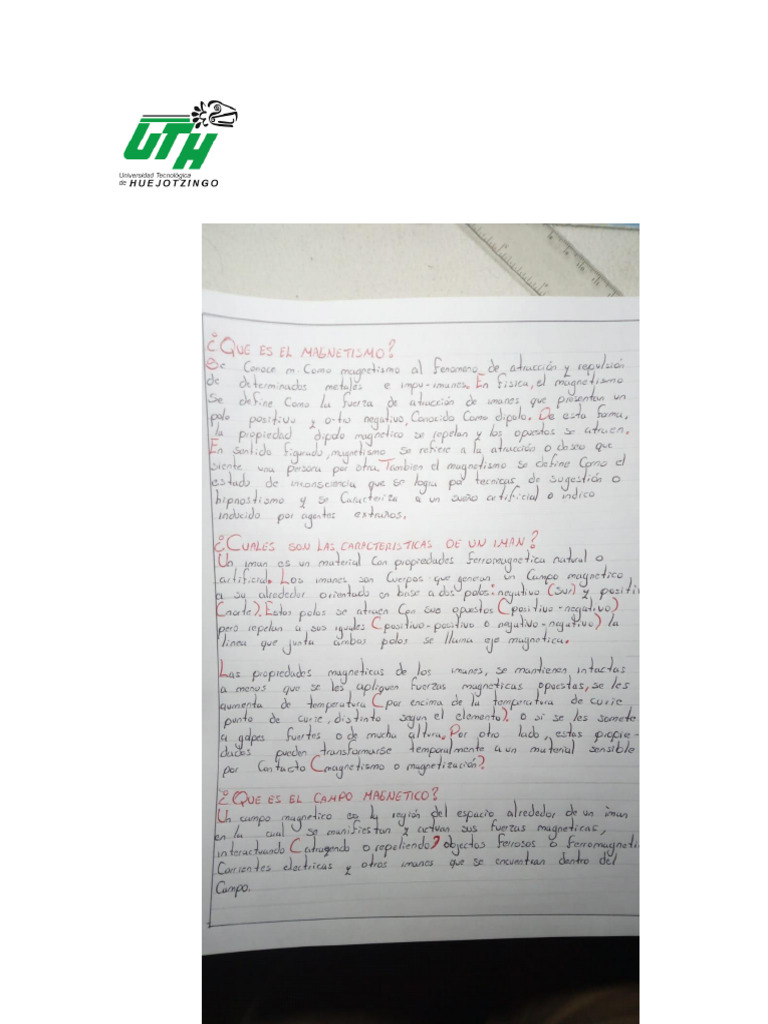 UTH
Universidad Tecnológica
de HUEJOTZINGO
¿QUE ES EL MAGNETISMO?
Se Conoce m. Como magnetismo al fenomeno de atracción y repulsión
de determinados metales e impu-imanes. En fisica, el magnetismo
se define Como la fuerza de atracción de imanes que presentan un
polo positivo y o-tro negativo, Conocido Como dipolo. De esta forma,
la propiedad dipolo magnetico se repelan y los opuestos se atraen.
En sentido figurado, magnetismo se refiere a la atracción o deseo que
siente una persona por otra. Tambien el magnetismo se define Como el
estado de inconsciencia que se logra por tecnicas de sugestión o
hipnostismo y se Caracteriza a un sueño artificial o indico
inducido por agentes extraños.
¿CUALES SON LAS CARACTERISTICAS DE UN IMAN?
Un iman es un material Con propiedades ferromagnetica natural o
artificial. Los imanes son Cuerpos que generan un Campo magnetico
a su alrededor orientado en base a dos polos: negativo (sur) y positiv
(norte). Estos polos se atraen Con sus opuestos (positivo-negativo)
pero repelan a sus iguales (positivo-positivo o negativo-negativo) la
linea que junta ambos polos se llama eje magnetica.
Las propiedades magneticas de los imanes, se mantienen intactas
a menos que se les apliquen fuerzas magneticas opuestas, se les
aumenta de temperatura (por encima de la temperatura de curie
punto de curie, distinto segun el elemento). o si se les somete
a golpes fuertes o de mucha altura. Por otro lado, estas propie-
dades pueden transformarse temporalmente a un material sensible
por Contacto (magnetismo o magnetización?
¿QUE ES EL CAMPO MAGNETICO?
Un campo magnetico es la región del espacio alrededor de un iman
en la cual se manifiestan y actuan sus fuerzas magneticas,
interactuando (atrayendo o repeliendo) objectos ferrosos o ferromagneti
Corrientes electricas y otros imanes que se encuentran dentro del
Campo.